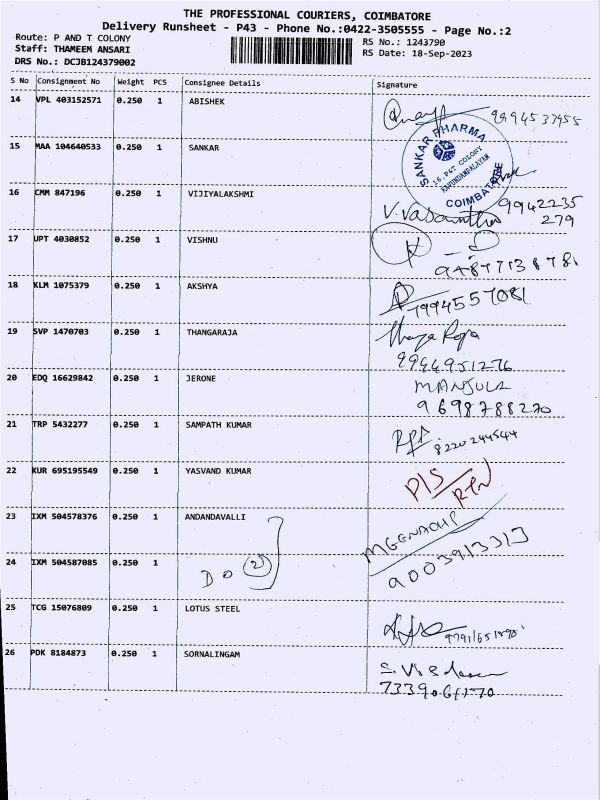 THE PROFESSIONAL COURIERS, COIMBATORE
Delivery Runsheet - P43 - Phone No.:0422-3505555 - Page No.:2
Route: P AND T COLONY
Staff: THAMEEM ANSARI
DRS No.: DCJB124379002
RS No.: 1243790
RS Date: 18-Sep-2023
S No Consignment No Weight PCS Consignee Details Signature
14 VPL 403152571 0.250 1 ABISHEK
9994537455
15 MAA 104640533 0.250 1 SANKAR
SANKAR PHARMA
16, P&T COLONY
COIMBATORE
16 CMM 847196 0.250 1 VIJIYALAKSHMI
V. Vasantha 9942235
279
17 UPT 4030852 0.250 1 VISHNU
9487713878
18 KLM 1075379 0.250 1 AKSHYA
7994557081
19 SVP 1470703 0.250 1 THANGARAJA
Thanga Raja
9944951276
20 EDQ 16629842 0.250 1 JERONE
MANJULA
9698788270
21 TRP 5432277 0.250 1 SAMPATH KUMAR
8220244544
22 KUR 695195549 0.250 1 YASVAND KUMAR
DIS
RTN
23 IXM 504578376 0.250 1 ANDANDAVALLI
MEENACHI
9003913313
24 IXM 504587085 0.250 1
DO 2
25 TCG 15076809 0.250 1 LOTUS STEEL
26 PDK 8184873 0.250 1 SORNALINGAM